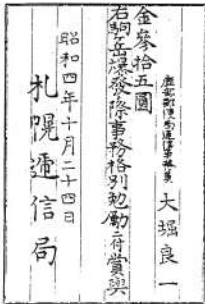 鹿部郵便局通信事務員 大堀良一
金參拾五圓
右駒ヶ岳爆發ノ際事務格別勉勵ニ付賞與
昭和四年十月二十四日
札幌遞信局